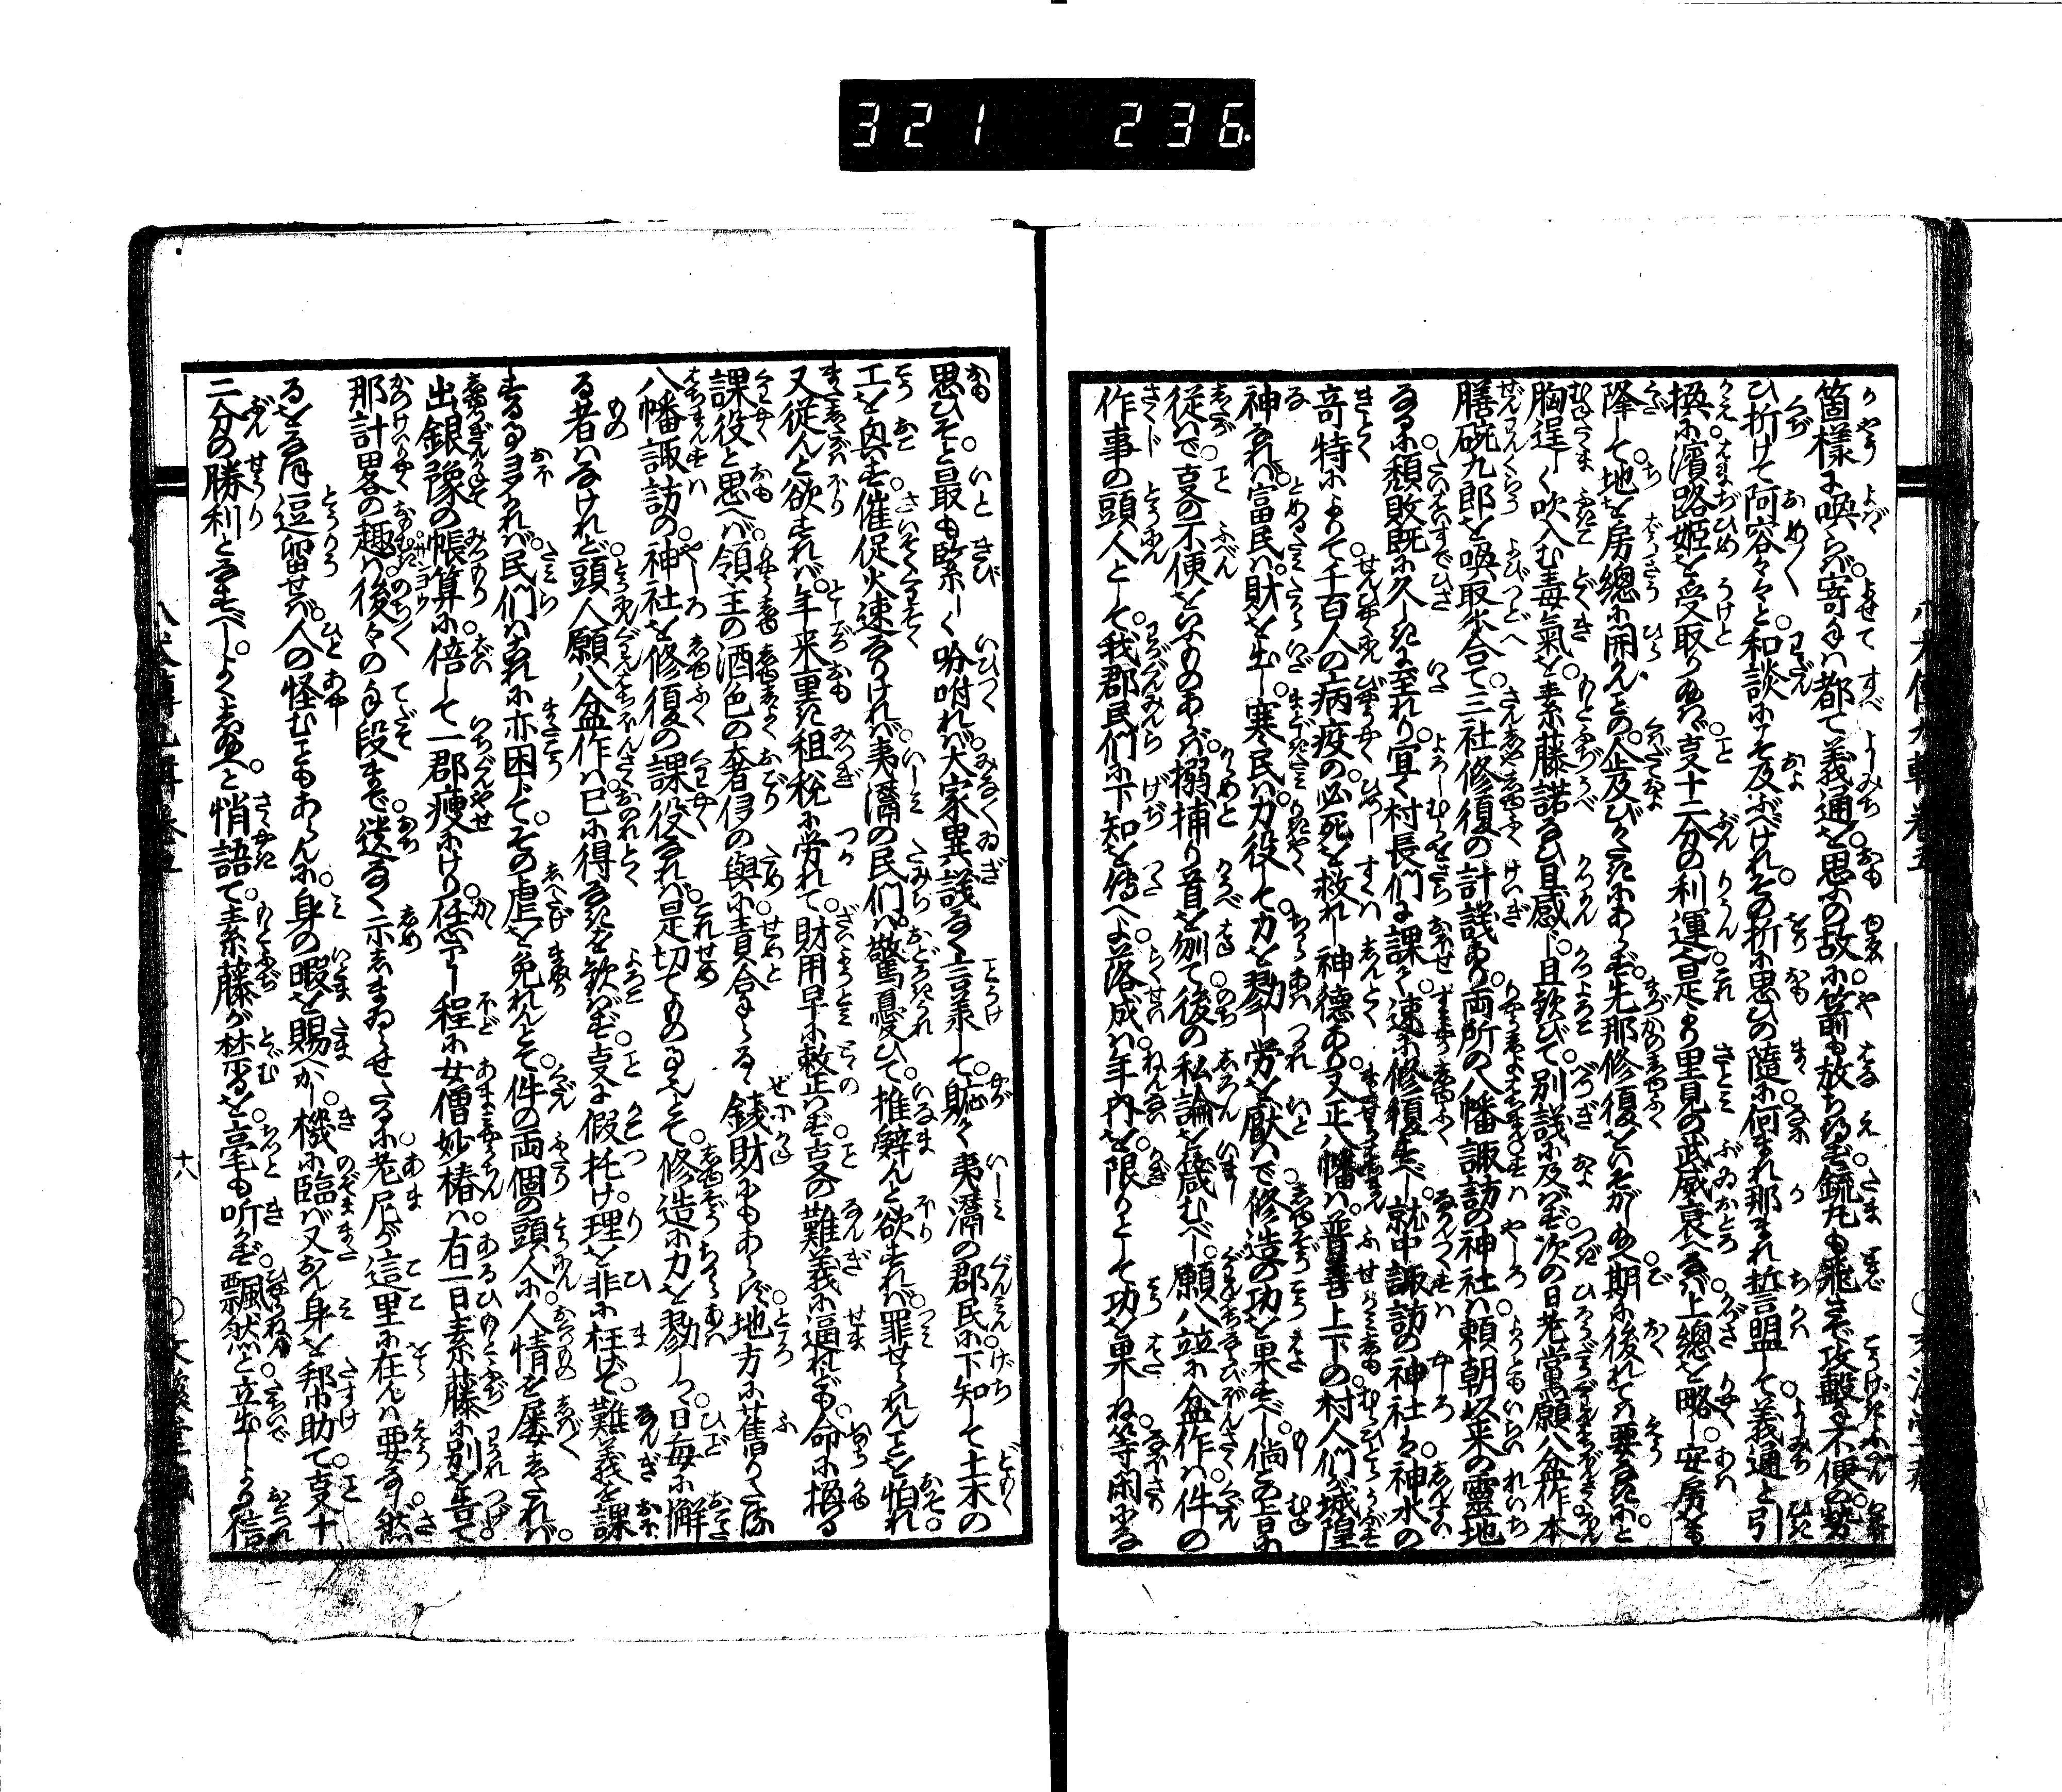 321 236
箇様に喚らば寄手は都て義通を思ふの故に箭も放ち得ず銃丸も飛さで攻撃に不便の勢
ひ折けて阿容々々と和談にこそ及ぶべけれその折に思ひの随に何まれ那まれ誓盟して義通と引
換に濱路姫を受取り給はゞ事十二分の利運是より里見の武威衰へなば上總を略し安房も
降して地を房總に開かんとの企及びがたきにあらず先那修復をいそがし給へ期に後れては要なきにこそと
胸逞しく吹入む毒氣を素藤諾なひ且感じ且歓びて別議に及ばず次の日老黨願八盆作本
膳碗九郎を喚取合て三社修復の計議あり両所の八幡諏訪の神社は頼朝以来の靈地
なるに頽敗既に久しきに至れり宜く村長們に課て速に修復すべし就中諏訪の神社は神水の
奇特によりて千百人の病疫の必死を救れし神徳あり又正八幡は普善上下の村人們が城隍
神なれば富民は財を出し寒民は力役して力を勠し労を厭はで修造の功を果すべし倘この旨に
従はで事の不便をいふものあらば搦捕り首を刎て後の私論を箴むべし願八竝に盆作は件の
作事の頭人として我郡民們に下知を傳へよ落成は年内を限りとして功を果しね等閑にな
思ひそと最も緊しく吩咐れば大家異議なく言承して軈て夷灊の郡民に下知して土木の
工を興す催促火速なりければ夷灊の民們は驚憂ひて推辞んと欲すれば罪せられんことを怕れ
又従んと欲すれば年来重き租税に労れて財用早に敷正はず事の難義に逼れども命に掯る
課役と思へば領主の酒色の奢侈の與に責合るゝ銭財にもあらず地方に舊りたる
八幡諏訪の神社を修復の課役なれば是切てものことゝて修造に力を勠しつゝ日毎に懈
る者はなけれど頭人願八盆作は己に得なきを歓ばず事に假托け理を非に枉て難義を課
すること多かれば民們はこれに亦困じてその虐を免れんとて件の両個の頭人に人情を屡したれば
出銀豫の帳算に倍して一郡痩にけり恁りし程に女僧妙椿は有一日素藤に別を告て
那計畧の趣は後々の手段まで送なく示しまゐらせたるに老尼が這里に在んは要なし然
るを手逗留せば人の怪むこともあらんに身の暇を賜へかし機に臨ば又わが身を幇助て事十
二分の勝利となすべしよくし給へと悄語て素藤が禁るを毫も听かず飄然と立出しより信
十八